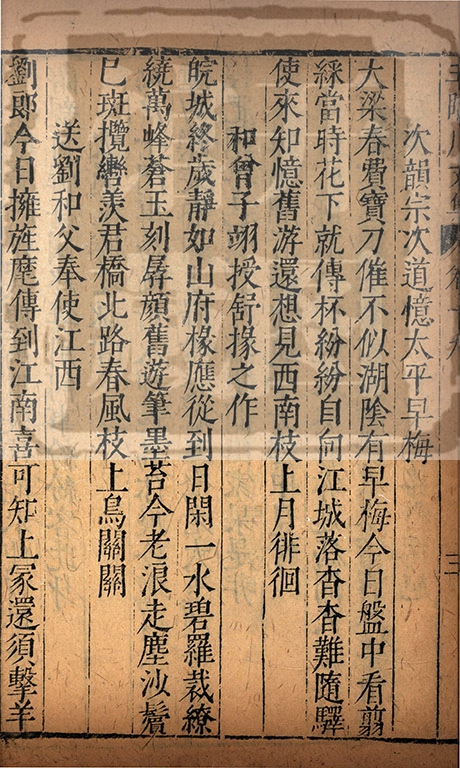 次韻宗次道憶太平早梅
大梁春費寶刀催不似湖陰有早梅今日盤中看翦
綵當時花下就傳杯紛紛自向江城落杳杳難隨驛
使來知憶舊游還想見西南枝上月徘徊
和曾子翊授舒掾之作
皖城終歲靜如山府掾應從到日閑一水碧羅裁繚
繞萬峰蒼玉刻孱顔舊遊筆墨苔今老浪走塵沙鬢
已斑攬轡羨君橋北路春風枝上鳥關關
送劉和父奉使江西
劉郎今日擁旌麾傳到江南喜可知上冢還須擊羊